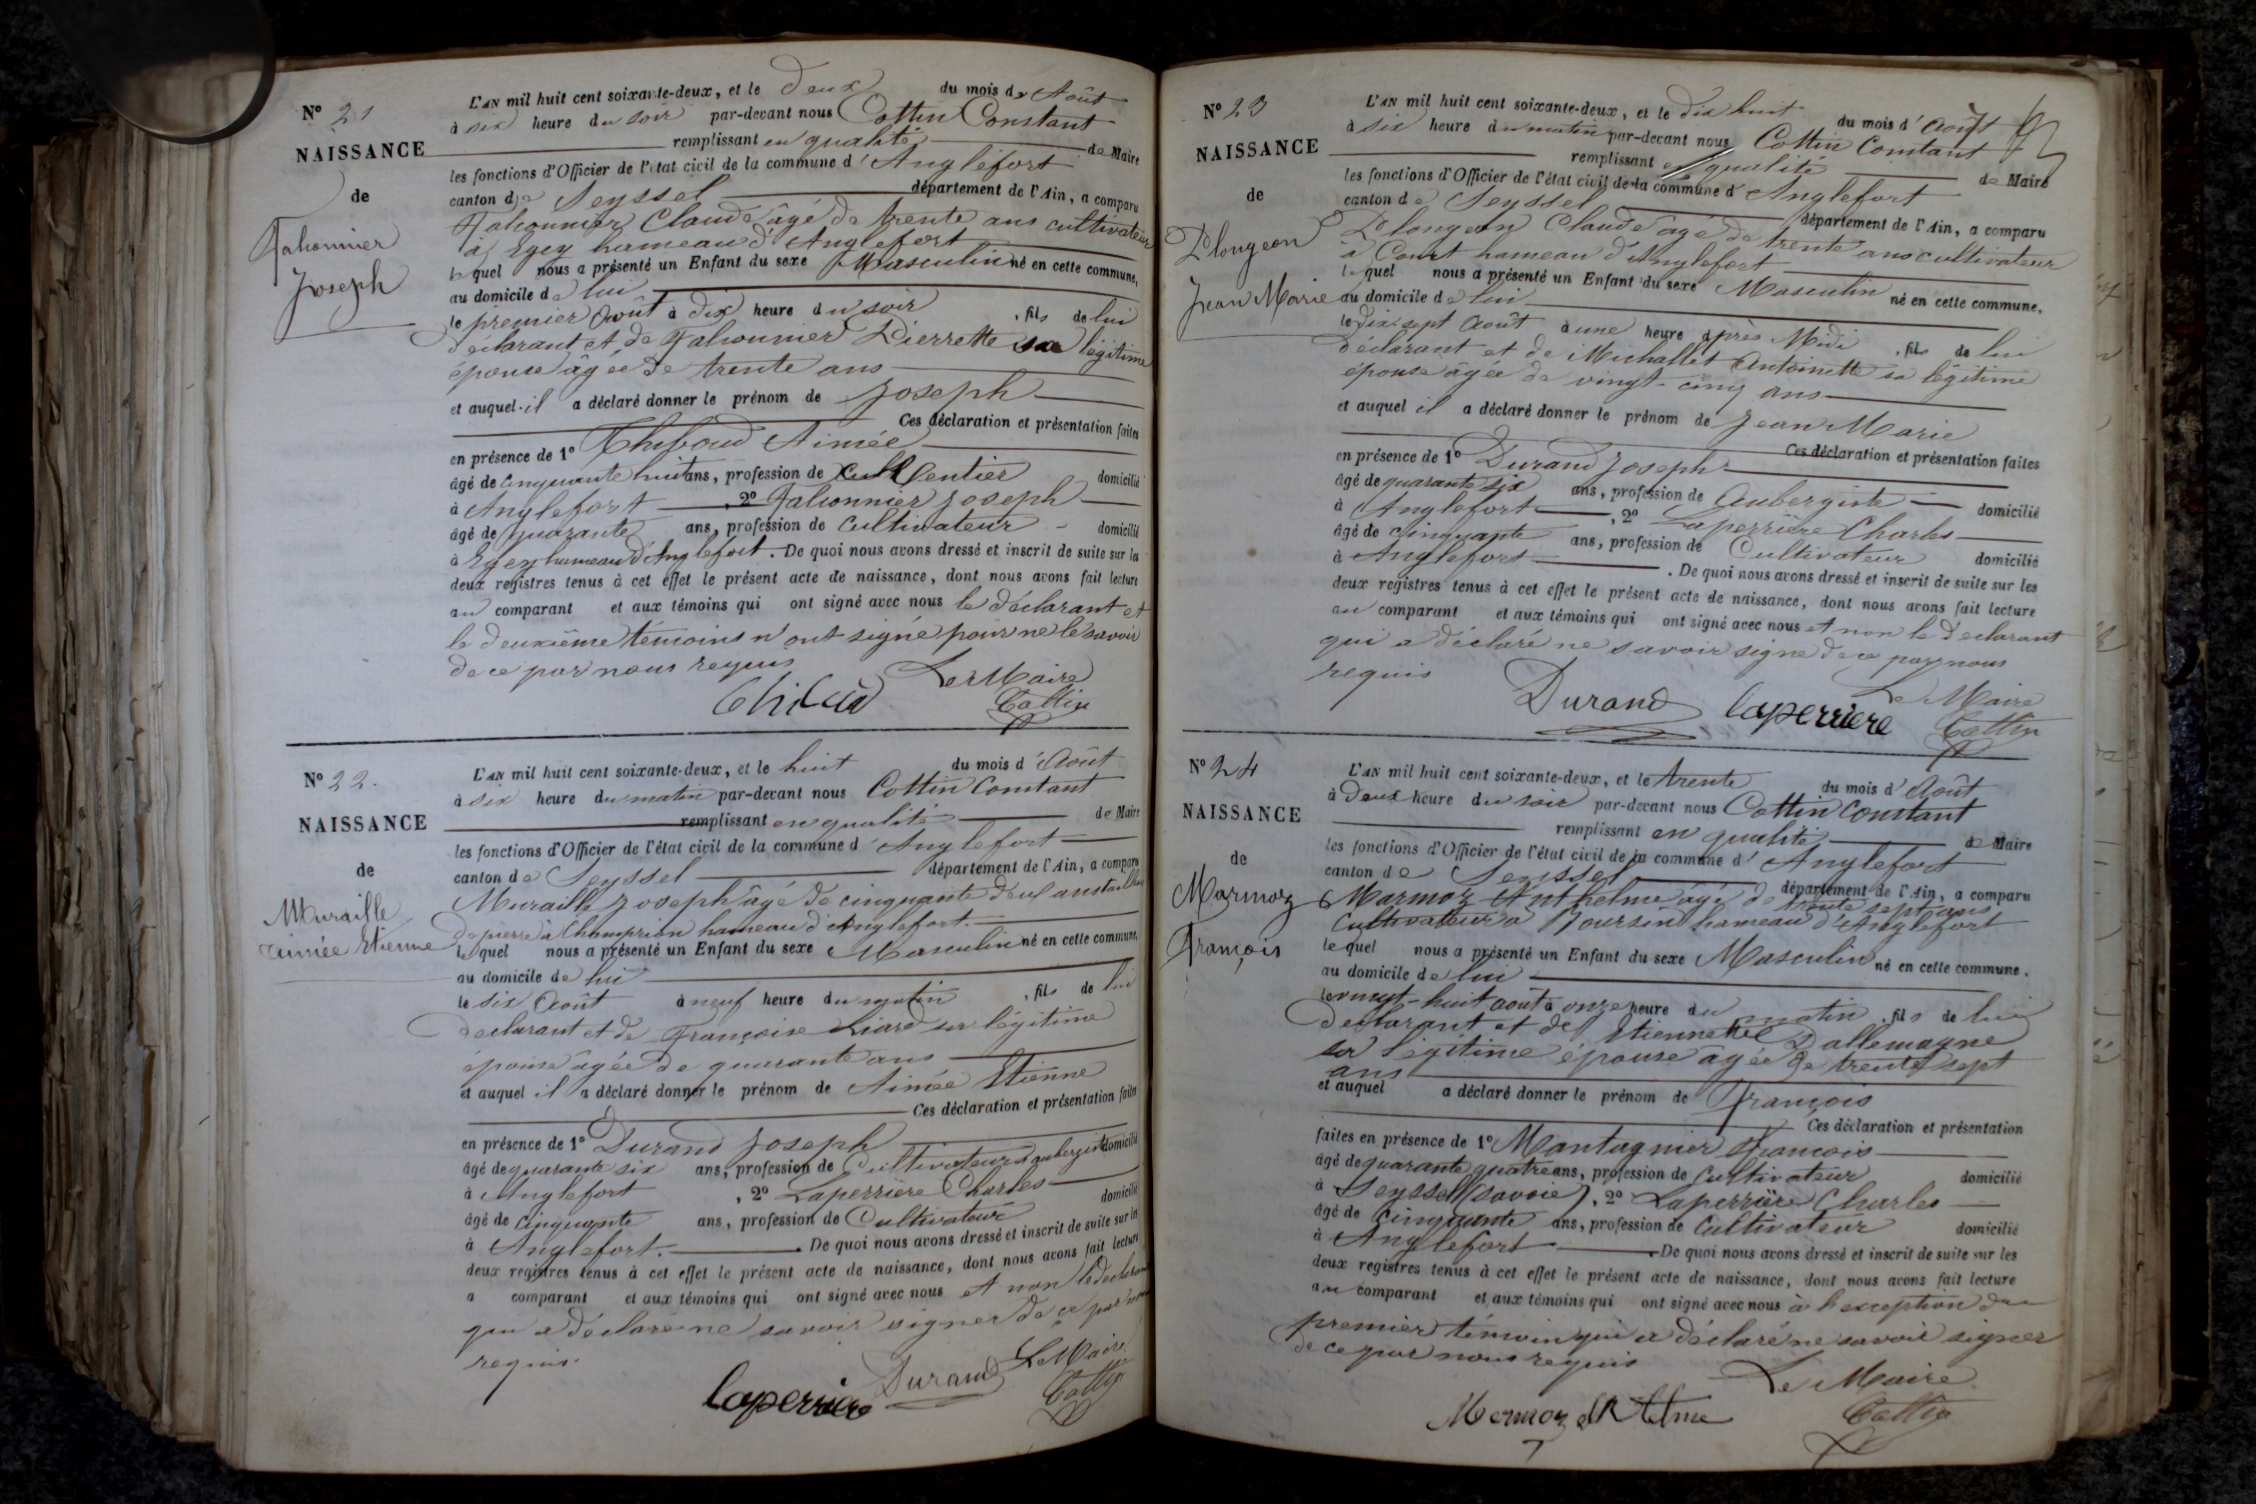 N° 21
NAISSANCE
de
Falconnier
Joseph
L'AN mil huit cent soixante-deux, et le deux du mois d Août
à six heure du soir par-devant nous Cottin Constant
remplissant en qualité de Maire
les fonctions d'Officier de l'état civil de la commune d' Anglefort
canton de Seyssel département de l'Ain, a comparu
Falconnier Claude âgé de trente ans cultivateur
à Egey hameau d'Anglefort
lequel nous a présenté un Enfant du sexe Masculin né en cette commune,
au domicile de lui
le premier Août à dix heure du soir, fils de lui
déclarant et de Falconnier Pierrette sa légitime
épouse âgée de trente ans
et auquel il a déclaré donner le prénom de Joseph
Ces déclaration et présentation faites
en présence de 1° Thiboud Aimée
âgé de cinquante huit ans, profession de rentier domicilié
à Anglefort, 2° Falconnier Joseph
âgé de quarante ans, profession de cultivateur domicilié
à Egey hameau d'Anglefort. De quoi nous avons dressé et inscrit de suite sur les
deux registres tenus à cet effet le présent acte de naissance, dont nous avons fait lecture
au comparant et aux témoins qui ont signé avec nous le déclarant et
le deuxième témoins n'ont signé pour ne le savoir
de ce par nous requis
Le Maire
Cottin
N° 22.
NAISSANCE
de
Muraille
Aimée Etienne
L'AN mil huit cent soixante-deux, et le huit du mois d'Août
à six heure du matin par-devant nous Cottin Constant
remplissant en qualité de Maire
les fonctions d'Officier de l'état civil de la commune d'Anglefort
canton de Seyssel département de l'Ain, a comparu
Muraille Joseph âgé de cinquante deux ans tailleur
de pierre à Champrion hameau d'Anglefort.
lequel nous a présenté un Enfant du sexe Masculin né en cette commune,
au domicile de lui
le six Août à neuf heure du matin, fils de lui
déclarant et de Françoise Liard sa légitime
épouse âgée de quarante ans
et auquel il a déclaré donner le prénom de Aimée Etienne
Ces déclaration et présentation faites
en présence de 1° Durand Joseph
âgé de quarante six ans, profession de Cultivateur aubergiste domicilié
à Anglefort, 2° Laperrière Charles
âgé de cinquante ans, profession de Cultivateur domicilié
à Anglefort. De quoi nous avons dressé et inscrit de suite sur les
deux registres tenus à cet effet le présent acte de naissance, dont nous avons fait lecture
a comparant et aux témoins qui ont signé avec nous et non le déclarant
qui a déclaré ne savoir signer de ce par nous
requis.
Le Maire
laperriere Durand Cottin
N° 23
NAISSANCE
de
Plongeon
Jean Marie
L'AN mil huit cent soixante-deux, et le dix huit du mois d'Août
à six heure du matin par-devant nous Cottin Constant
remplissant en qualité de Maire
les fonctions d'Officier de l'état civil de la commune d'Anglefort
canton de Seyssel département de l'Ain, a comparu
Plongeon Claude âgé de trente ans cultivateur
à Court hameau d'Anglefort
lequel nous a présenté un Enfant du sexe Masculin né en cette commune,
au domicile de lui
le dix sept Août à une heure après Midi, fils de lui
déclarant et de Michallet Antoinette sa légitime
épouse âgée de vingt-cinq ans
et auquel il a déclaré donner le prénom de Jean Marie
Ces déclaration et présentation faites
en présence de 1° Durand Joseph
âgé de quarante six ans, profession de Aubergiste domicilié
à Anglefort, 2° Laperrière Charles
âgé de cinquante ans, profession de Cultivateur domicilié
à Anglefort. De quoi nous avons dressé et inscrit de suite sur les
deux registres tenus à cet effet le présent acte de naissance, dont nous avons fait lecture
au comparant et aux témoins qui ont signé avec nous et non le déclarant
qui a déclaré ne savoir signe de ce par nous
requis
Le Maire
Durand laperriere Cottin
N° 24
NAISSANCE
de
Marmoz
François
L'AN mil huit cent soixante-deux, et le trente du mois d'Août
à deux heure du soir par-devant nous Cottin Constant
remplissant en qualité de Maire
les fonctions d'Officier de l'état civil de la commune d'Anglefort
canton de Seyssel département de l'Ain, a comparu
Marmoz Anthelme âgé de trente sept ans
Cultivateur à Boursin hameau d'Anglefort
lequel nous a présenté un Enfant du sexe Masculin né en cette commune.
au domicile de lui
le vingt-huit août à onze heure du matin, fils de lui
déclarant et de Etiennette Dallemagne
sa légitime épouse âgée de trente sept
ans
et auquel a déclaré donner le prénom de François
Ces déclaration et présentation
faites en présence de 1° Montagnier François
âgé de quarante quatre ans, profession de Cultivateur domicilié
à Seyssel (Savoie), 2° Laperrière Charles
âgé de cinquante ans, profession de Cultivateur domicilié
à Anglefort. De quoi nous avons dressé et inscrit de suite sur les
deux registres tenus à cet effet le présent acte de naissance, dont nous avons fait lecture
au comparant et aux témoins qui ont signé avec nous à l'exception du
premier témoin qui a déclaré ne savoir signer
de ce par nous requis
Le Maire
Mermoz Cottin